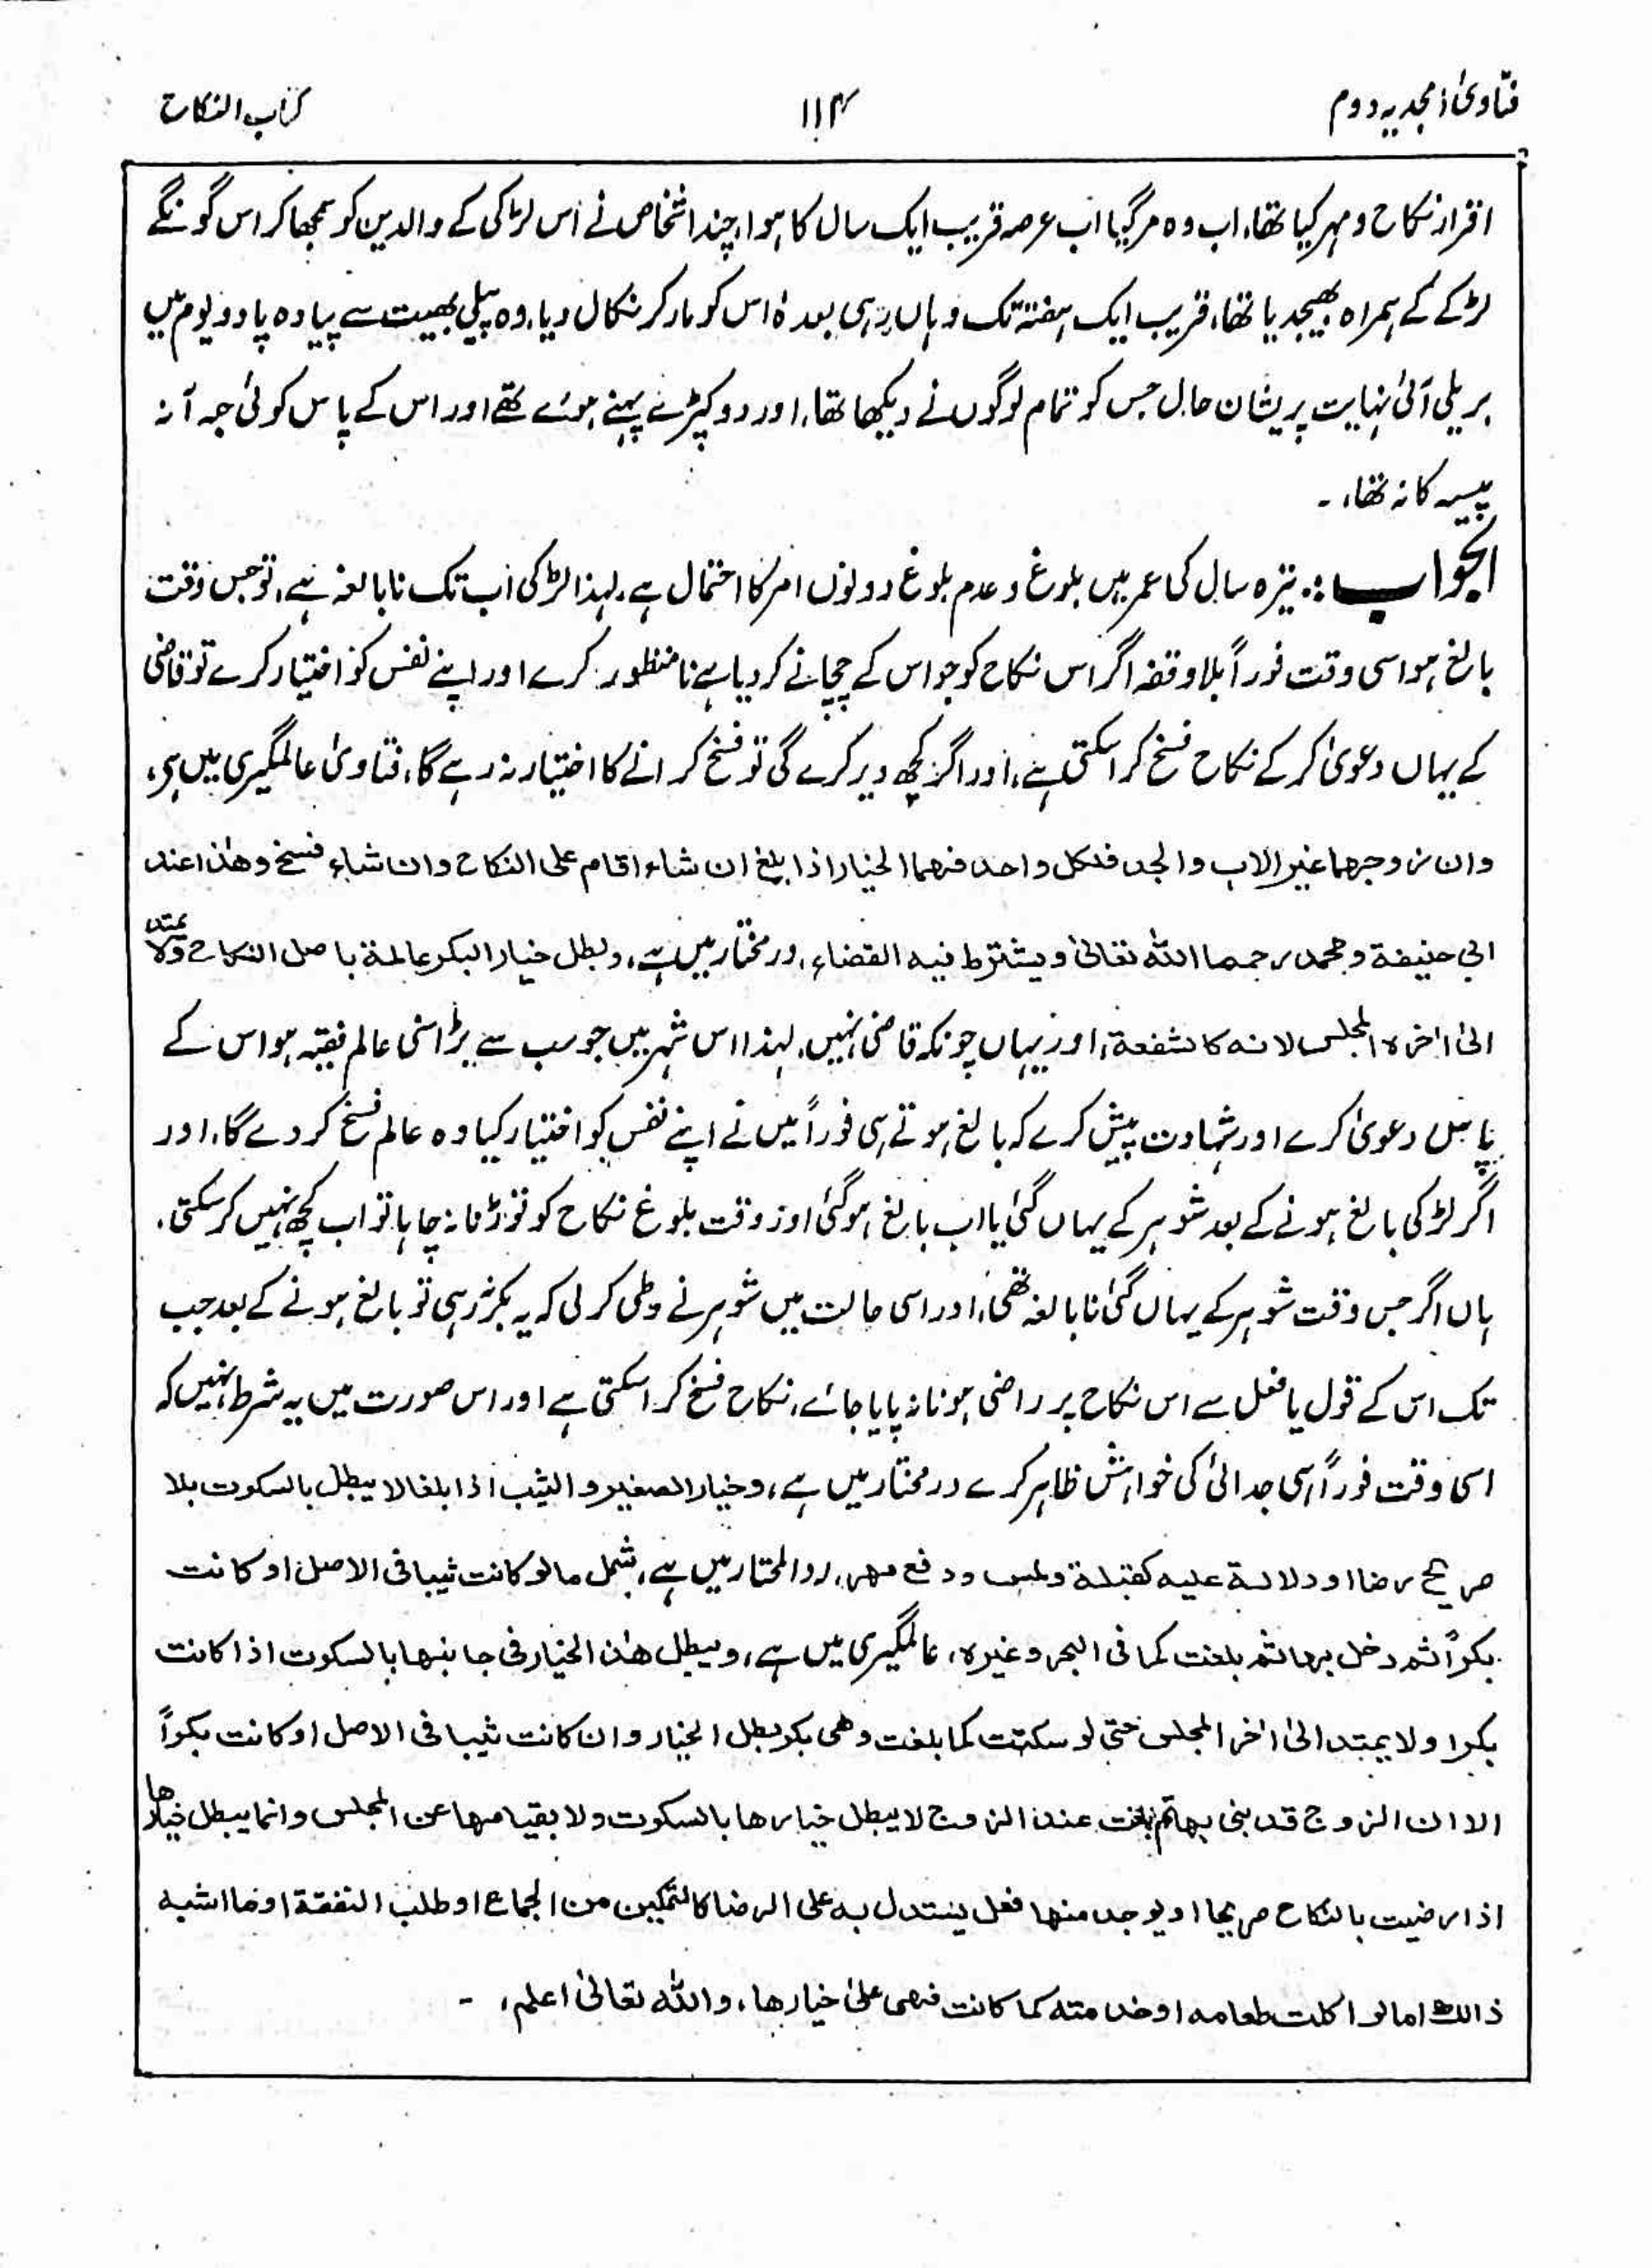 فتاویٰ امجدیہ دوم
۱۱۴
کتاب النکاح
اقرار نکاح و مہر کیا تھا، اب وہ مرگیا اب عرصہ قریب ایک سال کا ہوا، چند اشخاص نے اس لڑکی کے والدین کو سمجھا کر اس گونگے
لڑکے کے ہمراہ بھیجدیا تھا، قریب ایک ہفتہ تک وہاں رہی بعدہٗ اس کو مار کر نکال دیا، وہ پیلی بھیت سے پیادہ پا دو یوم میں
بریلی آئی نہایت پریشان حال جس کو تمام لوگوں نے دیکھا تھا، اور دو کپڑے پہنے ہوئے تھے اور اس کے پاس کوئی جہ آنہ
پیسہ کا نہ تھا، ۔
الجواب :۔ تیرہ سال کی عمر میں بلوغ و عدم بلوغ دونوں امر کا احتمال ہے، لہذا لڑکی اب تک نابالغہ ہے، تو جس وقت
بالغ ہو اسی وقت فوراً بلا وقفہ اگر اس نکاح کو جو اس کے چچا نے کر دیا ہے نا منظور کرے اور اپنے نفس کو اختیار کرے تو قاضی
کے یہاں دعویٰ کر کے نکاح فسخ کرا سکتی ہے، اور اگر کچھ دیر کرے گی تو فسخ کرانے کا اختیار نہ رہے گا، فتاویٰ عالمگیری میں ہے،
وان زوجہما غیر الاب والجد فلکل واحد منہما الخیار اذا بلغ ان شاء اقام علی النکاح وان شاء فسخ وھذا عند
ابی حنیفۃ ومحمد رحمہما اللہ تعالیٰ ویشترط فیہ القضاء، درمختار میں ہے، وبطل خیار البکر عالمۃ باصل النکاح ولا یمتد
الیٰ اٰخرہ المجلس لانہ کالشفعۃ، اور یہاں چونکہ قاضی نہیں، لہذا اس شہر میں جو سب سے بڑا سنی عالم فقیہ ہو اس کے
پاس دعویٰ کرے اور شہادت پیش کرے کہ بالغ ہوتے ہی فوراً میں نے اپنے نفس کو اختیار کیا وہ عالم فسخ کر دے گا، اور
اگر لڑکی بالغ ہونے کے بعد شوہر کے یہاں گئی یا اب بالغ ہوگئی اور وقت بلوغ نکاح کو توڑنا نہ چاہا تو اب کچھ نہیں کر سکتی،
ہاں اگر جس وقت شوہر کے یہاں گئی نابالغہ تھی، اور اسی حالت میں شوہر نے وطی کر لی کہ یہ بکر نہ رہی تو بالغ ہونے کے بعد جب
تک اس کے قول یا فعل سے اس نکاح پر راضی ہونا نہ پایا جائے، نکاح فسخ کرا سکتی ہے اور اس صورت میں یہ شرط نہیں کہ
اسی وقت فوراً ہی جدائی کی خواہش ظاہر کرے درمختار میں ہے، وخیار الصغیر والثیب اذا بلغا لا یبطل بالسکوت بلا
صریح رضا او دلالۃ علیہ کقبلۃ ولمس ودفع مھر، ردالمحتار میں ہے، شمل مالو کانت ثیبا فی الاصل او کانت
بکراً ثم دخل بہا ثم بلغت کما فی البحر وغیرہ، عالمگیری میں ہے، ویبطل ھذا الخیار فی جانبھا بالسکوت اذا کانت
بکرا ولا یمتد الیٰ اٰخر المجلس حتی لو سکتت کما بلغت وھی بکر بطل الخیار وان کانت ثیبا فی الاصل او کانت بکراً
الا ان الزوج قد بنی بھا ثم بلغت عند الزوج لا یبطل خیارھا بالسکوت ولا بقیامھا عن المجلس وانما یبطل خیارھا
اذا رضیت بالنکاح صریحا او یوجد منھا فعل یستدل بہ علی الرضا کالتمکین من الجماع او طلب النفقۃ او ما اشبہ
ذالک اما لو اکلت طعامہ او خدمتہ کما کانت فھی علیٰ خیارھا، واللہ تعالیٰ اعلم، ۔